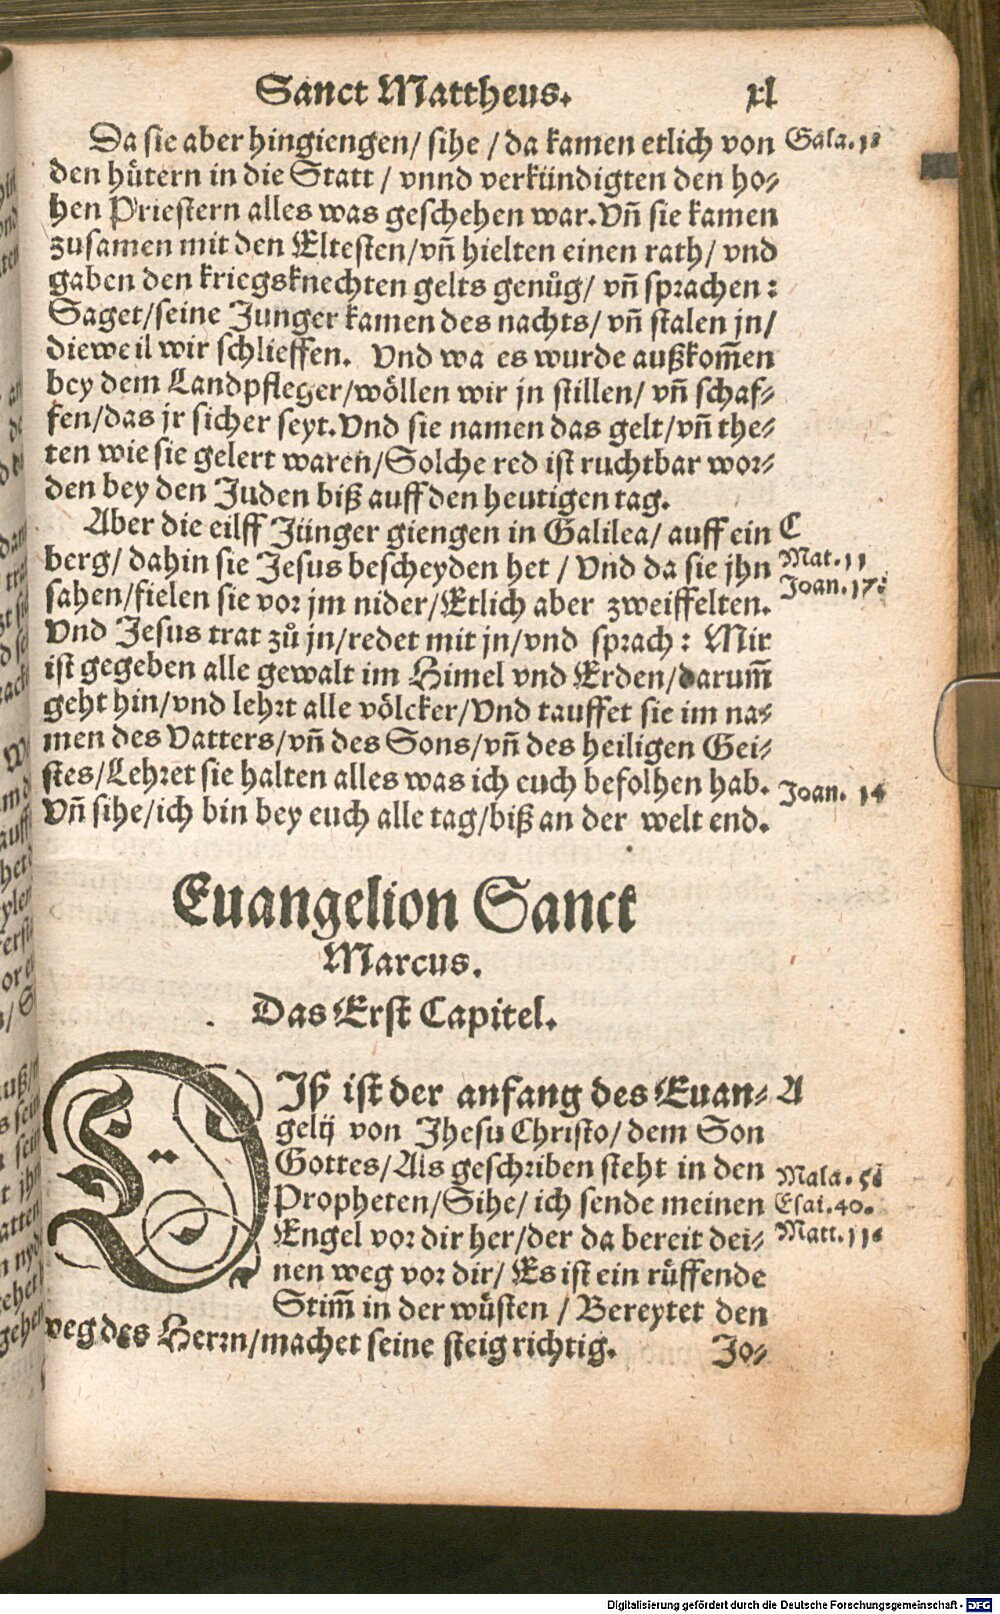 Sanct Mattheus. xl
Da sie aber hingiengen/ sihe / da kamen etlich von Gala. 1
den huͤtern in die Statt / vnnd verkuͤndigten den ho⸗
hen Priestern alles was geschehen war. Vñ sie kamen
zusamen mit den Eltesten/vñ hielten einen rath/ vnd
gaben den kriegsknechten gelts genuͦg/ vñ sprachen:
Saget/seine Junger kamen des nachts/ vñ stalen jn/
dieweil wir schlieffen. Vnd wa es wurde außkom̃en
bey dem Landpfleger/woͤllen wir jn stillen/ vñ schaf⸗
fen/das jr sicher seyt. Vnd sie namen das gelt/vñ the⸗
ten wie sie gelert waren/Solche red ist ruchtbar wor⸗
den bey den Juden biß auff den heutigen tag.
Aber die eilff Juͤnger giengen in Galilea/ auff ein C
berg/ dahin sie Jesus bescheyden het / Vnd da sie jhn Mat. 11
sahen/fielen sie vor jm nider/Etlich aber zweiffelten. Joan. 17.
Vnd Jesus trat zuͦ jn/redet mit jn/vnd sprach: Mir
ist gegeben alle gewalt im Himel vnd Erden/darum̃
geht hin/vnd lehrt alle voͤlcker/Vnd tauffet sie im na⸗
men des Vatters/vñ des Sons/vñ des heiligen Gei⸗
stes/Lehret sie halten alles was ich euch befolhen hab.
Vñ sihe/ich bin bey euch alle tag/biß an der welt end. Joan. 14
Euangelion Sanct
Marcus.
Das Erst Capitel.
DJß ist der anfang des Euan⸗ A
gelij von Jhesu Christo/ dem Son
Gottes/Als geschriben steht in den Mala.
Propheten/Sihe/ ich sende meinen Esai. 40.
Engel vor dir her/der da bereit dei⸗ Matt. 11
nen weg vor dir/ Es ist ein ruͤffende
Stim̃ in der wuͤsten / Bereytet den
weg des Herrn/machet seine steig richtig. Jo⸗
Digitalisierung gefördert durch die Deutsche Forschungsgemeinschaft - DFG